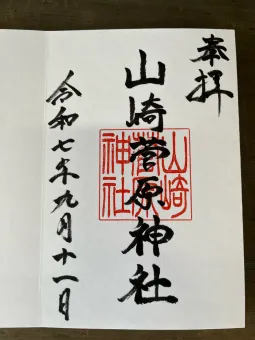 奉拝
山崎菅原神社
山崎
菅原
神社
令和七年九月十一日